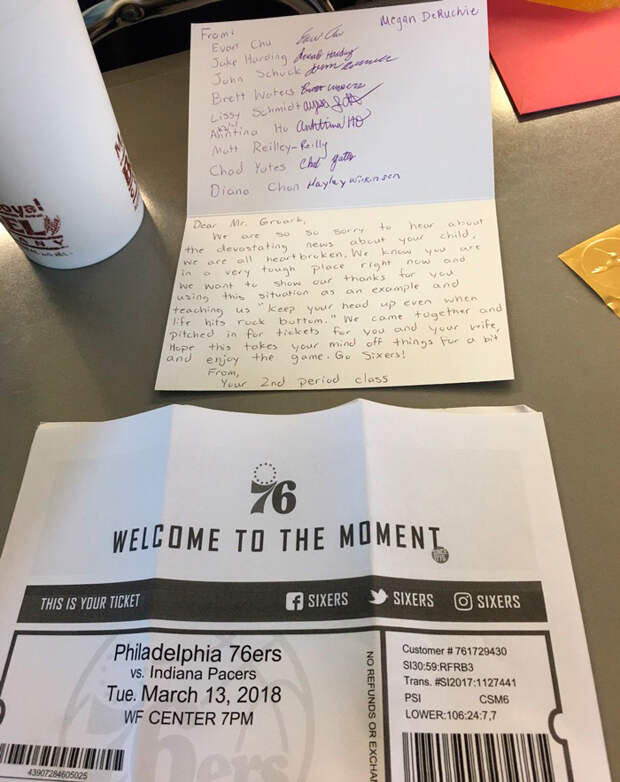 From:
Megan DeRuchie
Evan Chu
Jake Harding Jacob Harding
John Schuck
Brett Waters Brett Waters
Lissy Schmidt
Anhtina Ho Anhtina Ho
Matt Reilley-Reilly
Chad Yates Chad Yates
Diana Chan Hayley Wilkinson
Dear Mr. Groark,
We are so so sorry to hear about
the devastating news about your child,
we are all heartbroken. We know you are
in a very tough place right now and
we want to show our thanks for you
using this situation as an example and
teaching us "keep your head up even when
life hits rock bottom." We came together and
pitched in for tickets for you and your wife,
Hope this takes your mind off things for a bit
and enjoy the game. Go Sixers!
From,
Your 2nd period class
76
WELCOME TO THE MOMENT
THIS IS YOUR TICKET
SIXERS
SIXERS
SIXERS
Philadelphia 76ers
vs. Indiana Pacers
Tue. March 13, 2018
WF CENTER 7PM
76ers
43907284605025
NO REFUNDS OR EXCHA
Customer # 761729430
SI30:59:RFRB3
Trans. #SI2017:1127441
PSI CSM6
LOWER:106:24:7,7